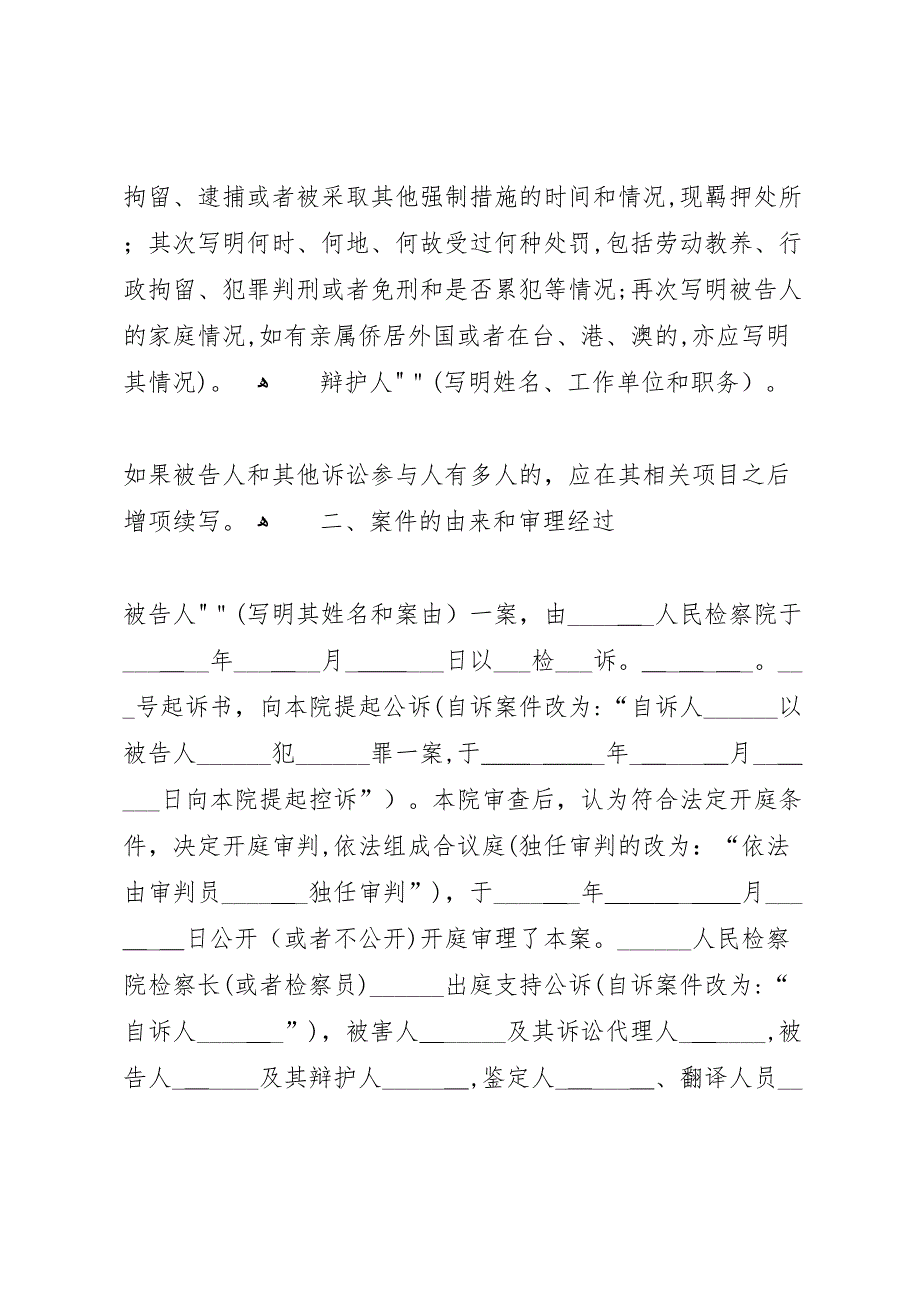 拘留、逮捕或者被采取其他强制措施的时间和情况,现羁押处所
；其次写明何时、何地、何故受过何种处罚,包括劳动教养、行
政拘留、犯罪判刑或者免刑和是否累犯等情况;再次写明被告人
的家庭情况,如有亲属侨居外国或者在台、港、澳的,亦应写明
其情况)。 ﻫ 辩护人""(写明姓名、工作单位和职务）。
如果被告人和其他诉讼参与人有多人的，应在其相关项目之后
增项续写。 ﻫ 二、案件的由来和审理经过
被告人""(写明其姓名和案由）一案，由_______人民检察院于
_______年_______月________日以___检___诉。_________。__
_号起诉书，向本院提起公诉(自诉案件改为:“自诉人______以
被告人______犯______罪一案,于__________年________月____
___日向本院提起控诉”）。本院审查后，认为符合法定开庭条
件，决定开庭审判,依法组成合议庭(独任审判的改为：“依法
由审判员_______独任审判”)，于_______年___________月___
_____日公开（或者不公开)开庭审理了本案。______人民检察
院检察长(或者检察员)______出庭支持公诉(自诉案件改为:“
自诉人_______”)，被害人_______及其诉讼代理人_______,被
告人_______及其辩护人_______,鉴定人________、翻译人员__